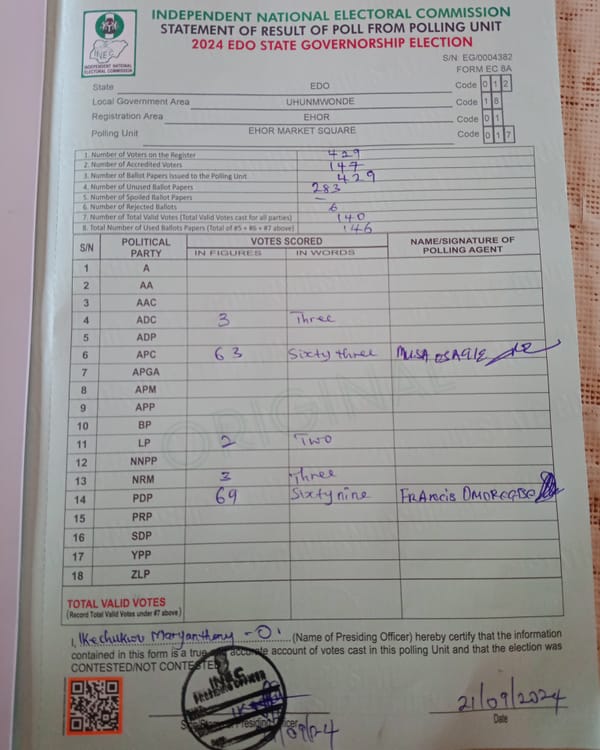 INDEPENDENT NATIONAL ELECTORAL COMMISSION
STATEMENT OF RESULT OF POLL FROM POLLING UNIT
2024 EDO STATE GOVERNORSHIP ELECTION
INEC
INDEPENDENT NATIONAL
ELECTORAL COMMISSION
S/N: EG/0004382
FORM EC 8A
State EDO Code 0 1 2
Local Government Area UHUNMWONDE Code 1 8
Registration Area EHOR Code 0 1
Polling Unit EHOR MARKET SQUARE Code 0 1 7
1. Number of Voters on the Register 429
2. Number of Accredited Voters 147
3. Number of Ballot Papers Issued to the Polling Unit 429
4. Number of Unused Ballot Papers 283
5. Number of Spoiled Ballot Papers –
6. Number of Rejected Ballots 6
7. Number of Total Valid Votes (Total Valid Votes cast for all parties) 140
8. Total Number of Used Ballots Papers (Total of #5 + #6 + #7 above) 146
S/N POLITICAL PARTY VOTES SCORED NAME/SIGNATURE OF POLLING AGENT
IN FIGURES IN WORDS
1 A
2 AA
3 AAC
4 ADC 3 Three
5 ADP
6 APC 63 Sixty three MUSA OSAGIE
7 APGA
8 APM
9 APP
10 BP
11 LP 2 TWO
12 NNPP
13 NRM 3 Three
14 PDP 69 Sixty nine FRANCIS
15 PRP
16 SDP
17 YPP
18 ZLP
ORIGINAL
TOTAL VALID VOTES
(Record Total Valid Votes under #7 above)
I, Ikechukwu Maryanthony - O. (Name of Presiding Officer) hereby certify that the information
contained in this form is a true accurate account of votes cast in this polling Unit and that the election was
CONTESTED/NOT CONTESTED
INEC
PRESIDING OFFICER
Presiding Officer
21/09/2024
Date